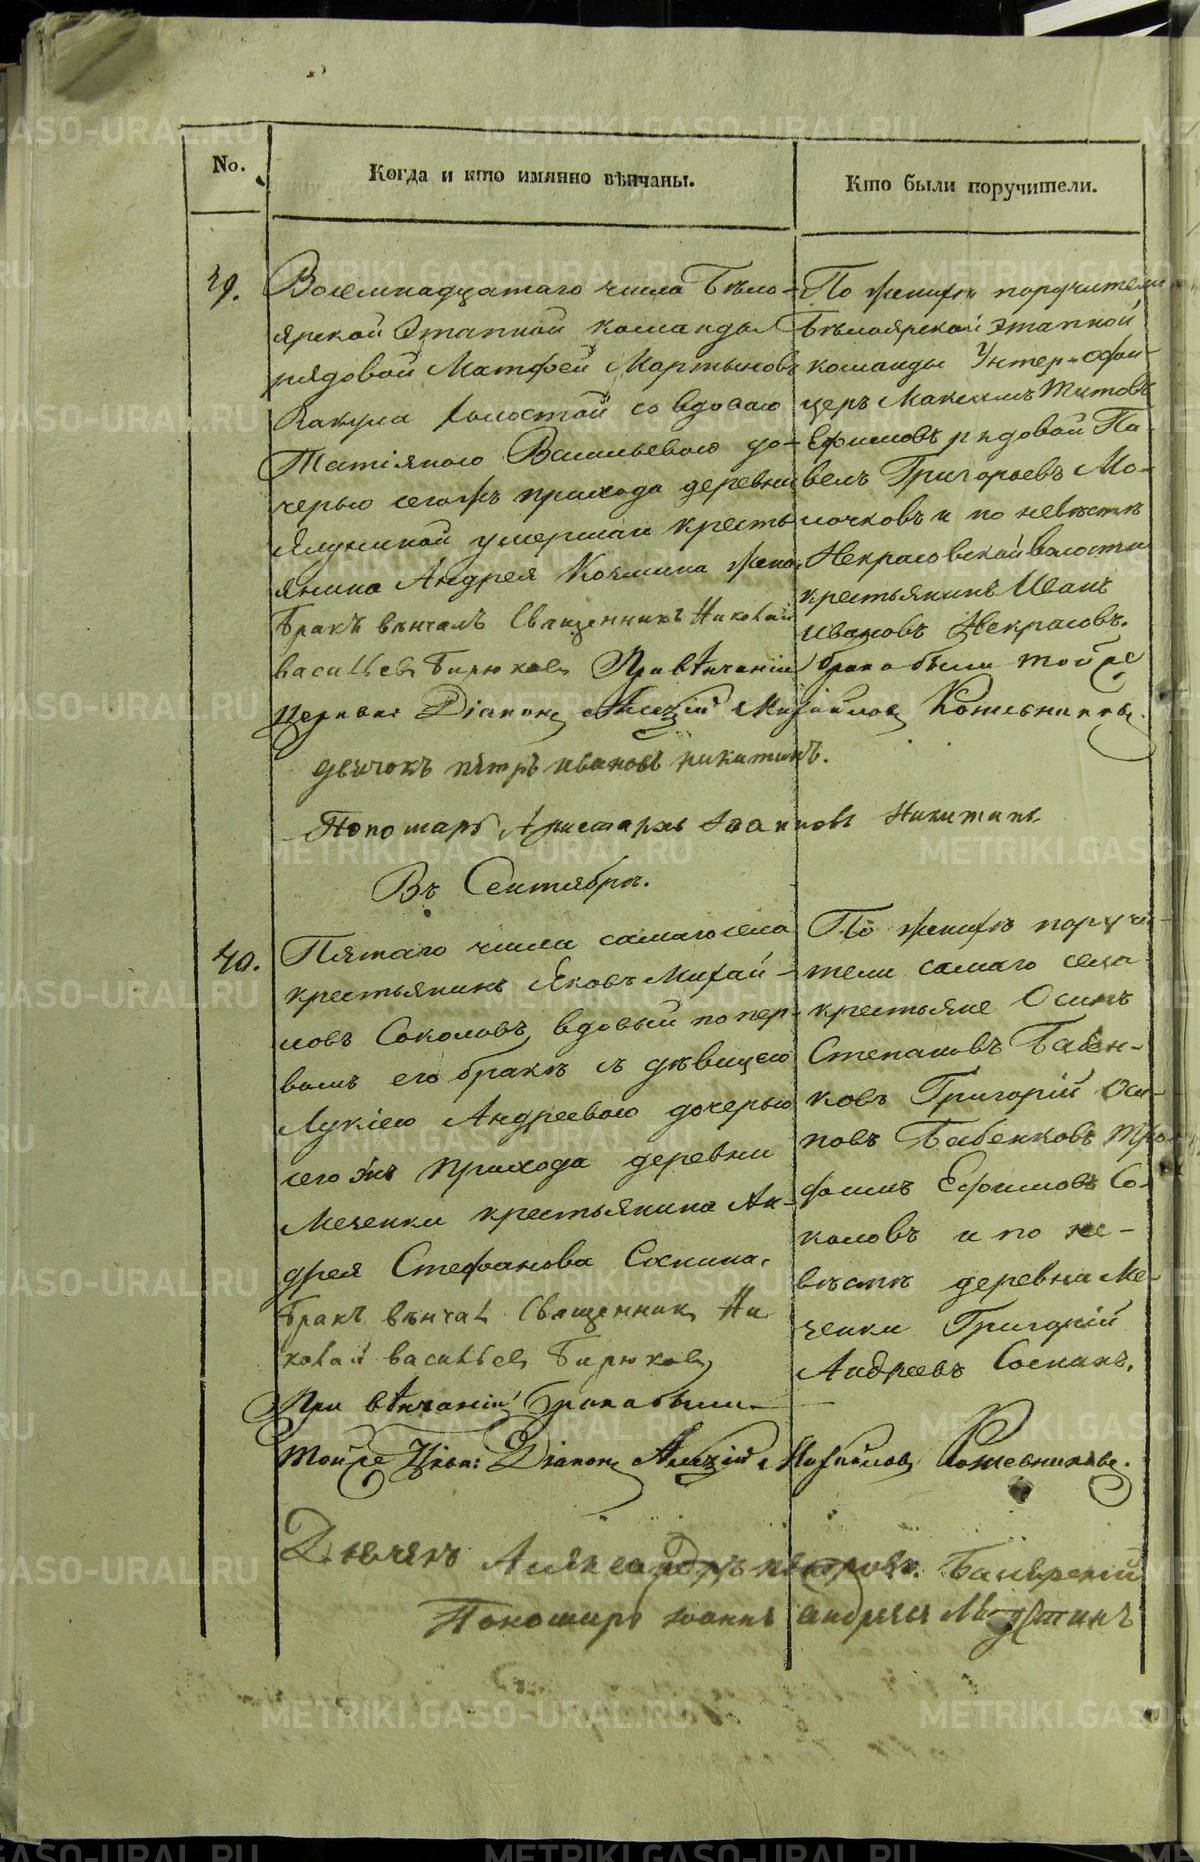 No.
Когда и кто имянно вѣнчаны.
Кто были поручители.
39.
Восемнадцатаго числа Бѣло-
ярской Этапной команды
рядовой Матфей Мартыновъ
холостой со вдовою
Татіяною Васильевою до-
черью сегожъ прихода деревни
умершаго кресть-
янина Андрея Козмина жена.
Бракъ вѣнчалъ Священникъ Николай
Васильевъ Бирюковъ При вѣнчаніи брака были тойже
Церкви: Діаконъ Алексій Михайловъ Кожевниковъ
дьячокъ петръ ивановъ никитинъ.
Пономарь Аристархъ Іоанновъ Никитинъ
По женихѣ поручители
Бѣлоярской этапной
команды Унтер-офи-
церъ Максимъ Титовъ
Ефимовъ рядовой Па-
велъ Григорьевъ Мо-
лочковъ и по невѣстѣ
Некрасовской волости
крестьянинъ Иванъ
Ивановъ Некрасовъ.
Въ Сентябрѣ.
40.
Пятаго числа самаго села
крестьянинъ Яковъ Михай-
ловъ Соколовъ, вдовый по пер-
вомъ его бракѣ съ дѣвицею
Лукіею Андреевою дочерью
сего жъ прихода деревни
Меченки крестьянина Ан-
дрея Стефанова Соснина.
Бракъ вѣнчалъ Священникъ Ни
колай Васильевъ Бирюковъ
При вѣнчаніи брака были
тойже Цркви: Діаконъ Алексій Михайловъ Кожевниковъ.
По женихѣ поручи-
тели самаго села
крестьяне Осипъ
Степановъ Бабен-
ковъ Григорій Оси-
повъ Бабенковъ Тро-
фимъ Ефимовъ Со-
коловъ и по не-
вѣстѣ деревни Ме-
ченки Григорій
Андреевъ Соснинъ.
Дьячекъ Александръ петровъ
Пономарь Іоаннъ андреевъ